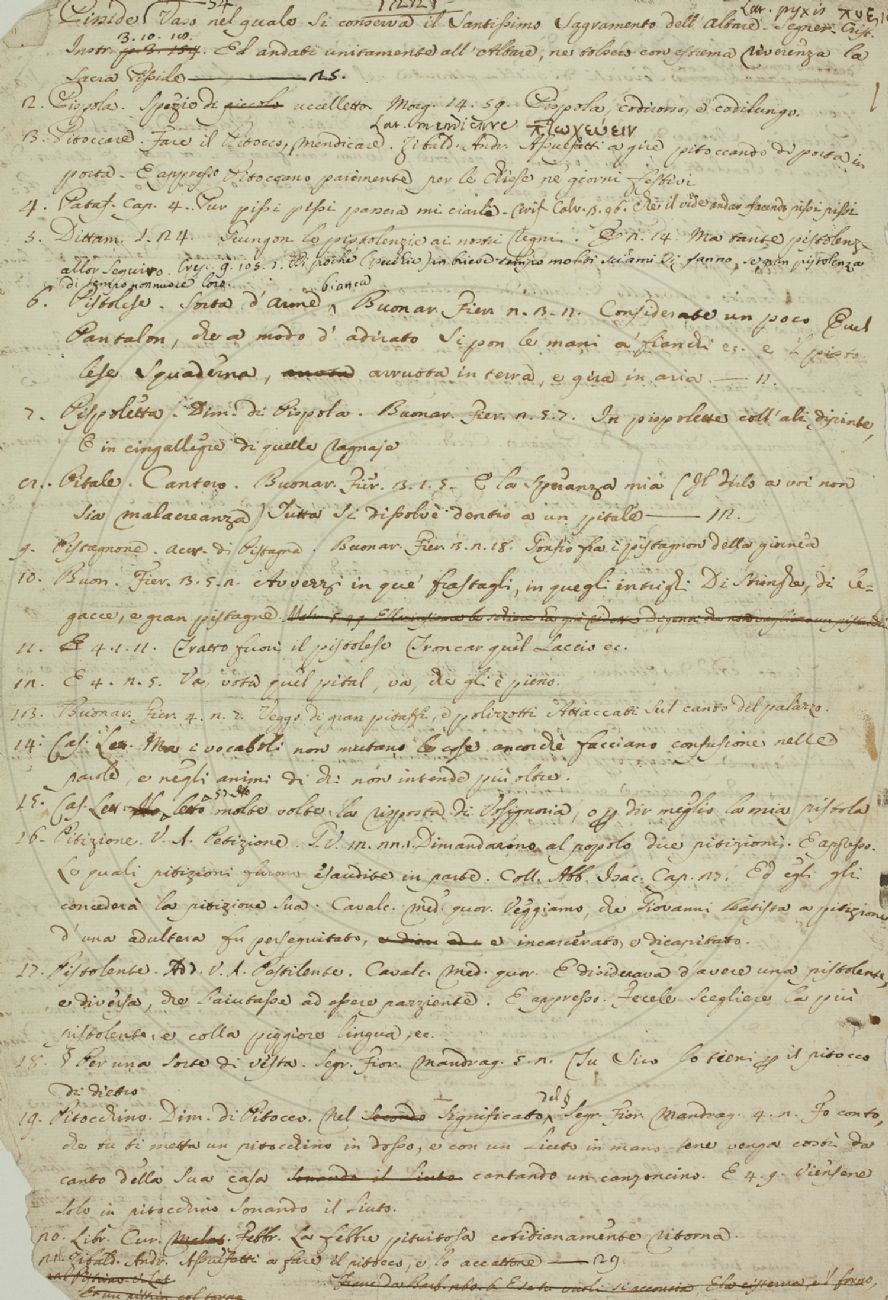 Pisside. Vaso nel quale si conserva il Santissimo Sagramento dell'Altare. Segner. Crist.
Lat. pyxis
Instr. 3. 10. 10. Ed andati unitamente all'Altare, ne tolsero con estrema riverenza la
Sacra Pisside — 25.
2. Pispola. Spezie di piccolo uccelletto Morg. 14. 59. Pispola, codirosso, e codilungo.
Lat. mendicare πτωχεύειν
3. Pitoccare. Fare il Pitocco, Mendicare. Zibald. Andr. Assuefatti a gire pitoccando di porta in
porta. E appresso Pitoccano parimente per le Chiese ne giorni festivi
4. Pataf. Cap. 4. Pur pissi pissi panora mi ciarla. Crif. Calv. 3. 96. Che il vide andar facendo pissi pissi
5. Dittam. 1. 24. Giungon le pistolenzie ai nostri Regni. E 2. 14. Ma tante pistolenz.
allor seguiro.
di tempo non nuoce loro.
6. Pistolese. Sorta d'arme bianca. Buonar. Fier. 2. 3. 2. Considerate un poco Quel
Pantalon, che a modo d'adirato Si pon le mani a' fianchi ec. e 'l pisto
lese Squaderna, arruota in terra, e gira in aria — 11.
7. Pispoletta. Dim. di Pispola. Buonar. Fier. 2. 5. 7. In pispolette coll'ali dipinte,
E in cingallegre di quelle ragnaje
8. Pitale. Cantero. Buonar. Fier. 3. 1. 5. E la speranza mia (Il dirlo a voi non
sia malacreanza) Tutta si dissolvè dentro a un pitale — 12.
9. Pistagnone. accr. di Pistagna. Buonar. Fier. 3. 2. 18. Ponsio fra i pistagnon della giornea
10. Buon. Fier. 3. 5. 2. Avvezzi in que' frastagli, in quegli intrighi Di stringhe, di le-
gacce, e gran pistagne.
11. E 4. 1. 11. Tratto fuori il pistolese Troncar quel Laccio ec.
12. E 4. 2. 5. Va, vota quel pital, va, che gli è pieno.
13. Buonar. Fier. 4. 2. 7. Veggo di gran pitaffi, e polizzotti Attaccati sul canto del palazzo.
14. Cas. Lett. Ma i vocaboli non mutano le cose ancorchè facciano confusione nelle
parole, e negli animi di chi non intende più oltre.
15. Cas. Lett. Ho letto molte volte la risposta di Vossignoria, o per dir meglio la mia pistola
16. Pitizione. V. A. Petizione. T. V. 12. 22. Dimandarono al popolo due pitizioni. E appresso.
Le quali pitizioni furono esaudite in parte. Coll. Abb. Isac. Cap. 23. Ed egli gli
concederà la pitizione sua. Cavalc. Med. quor. Veggiamo, che Giovanni Batista a pitizione
d'una adultera fu perseguitato, e incarcerato, e dicapitato.
17. Pistolente. Add. V. A. Pestilente. Cavalc. Med. quor. E disiderava d'avere una pistolente,
e diversa, che l'aiutasse ad essere paziente. E appresso. Fecele scegliere la più
pistolente, e colla peggiore lingua, ec.
18. § Per una sorte di vesta. Segr. Fior. Mandrag. 5. 2. (Tu Siro lo tieni per il pitocco
di dietro
19. Pitocchino. Dim. di Pitocco. Nel Secondo Significato del §. Segr. Fior. Mandrag. 4. 2. Fo conto,
che tu ti metta un pitocchino in dosso, e con un Liuto in mano tene venga costì da
canto della sua casa sonando il liuto cantando un canzoncino. E 4. 9. Viensene
solo in pitocchino sonando il liuto.
20. Libr. Cur. Febbr. La febbre pituitosa cotidianamente ritorna.
21. Zibald. Andr. Assuefatti a fare il pitocco, e lo accattone — 29.